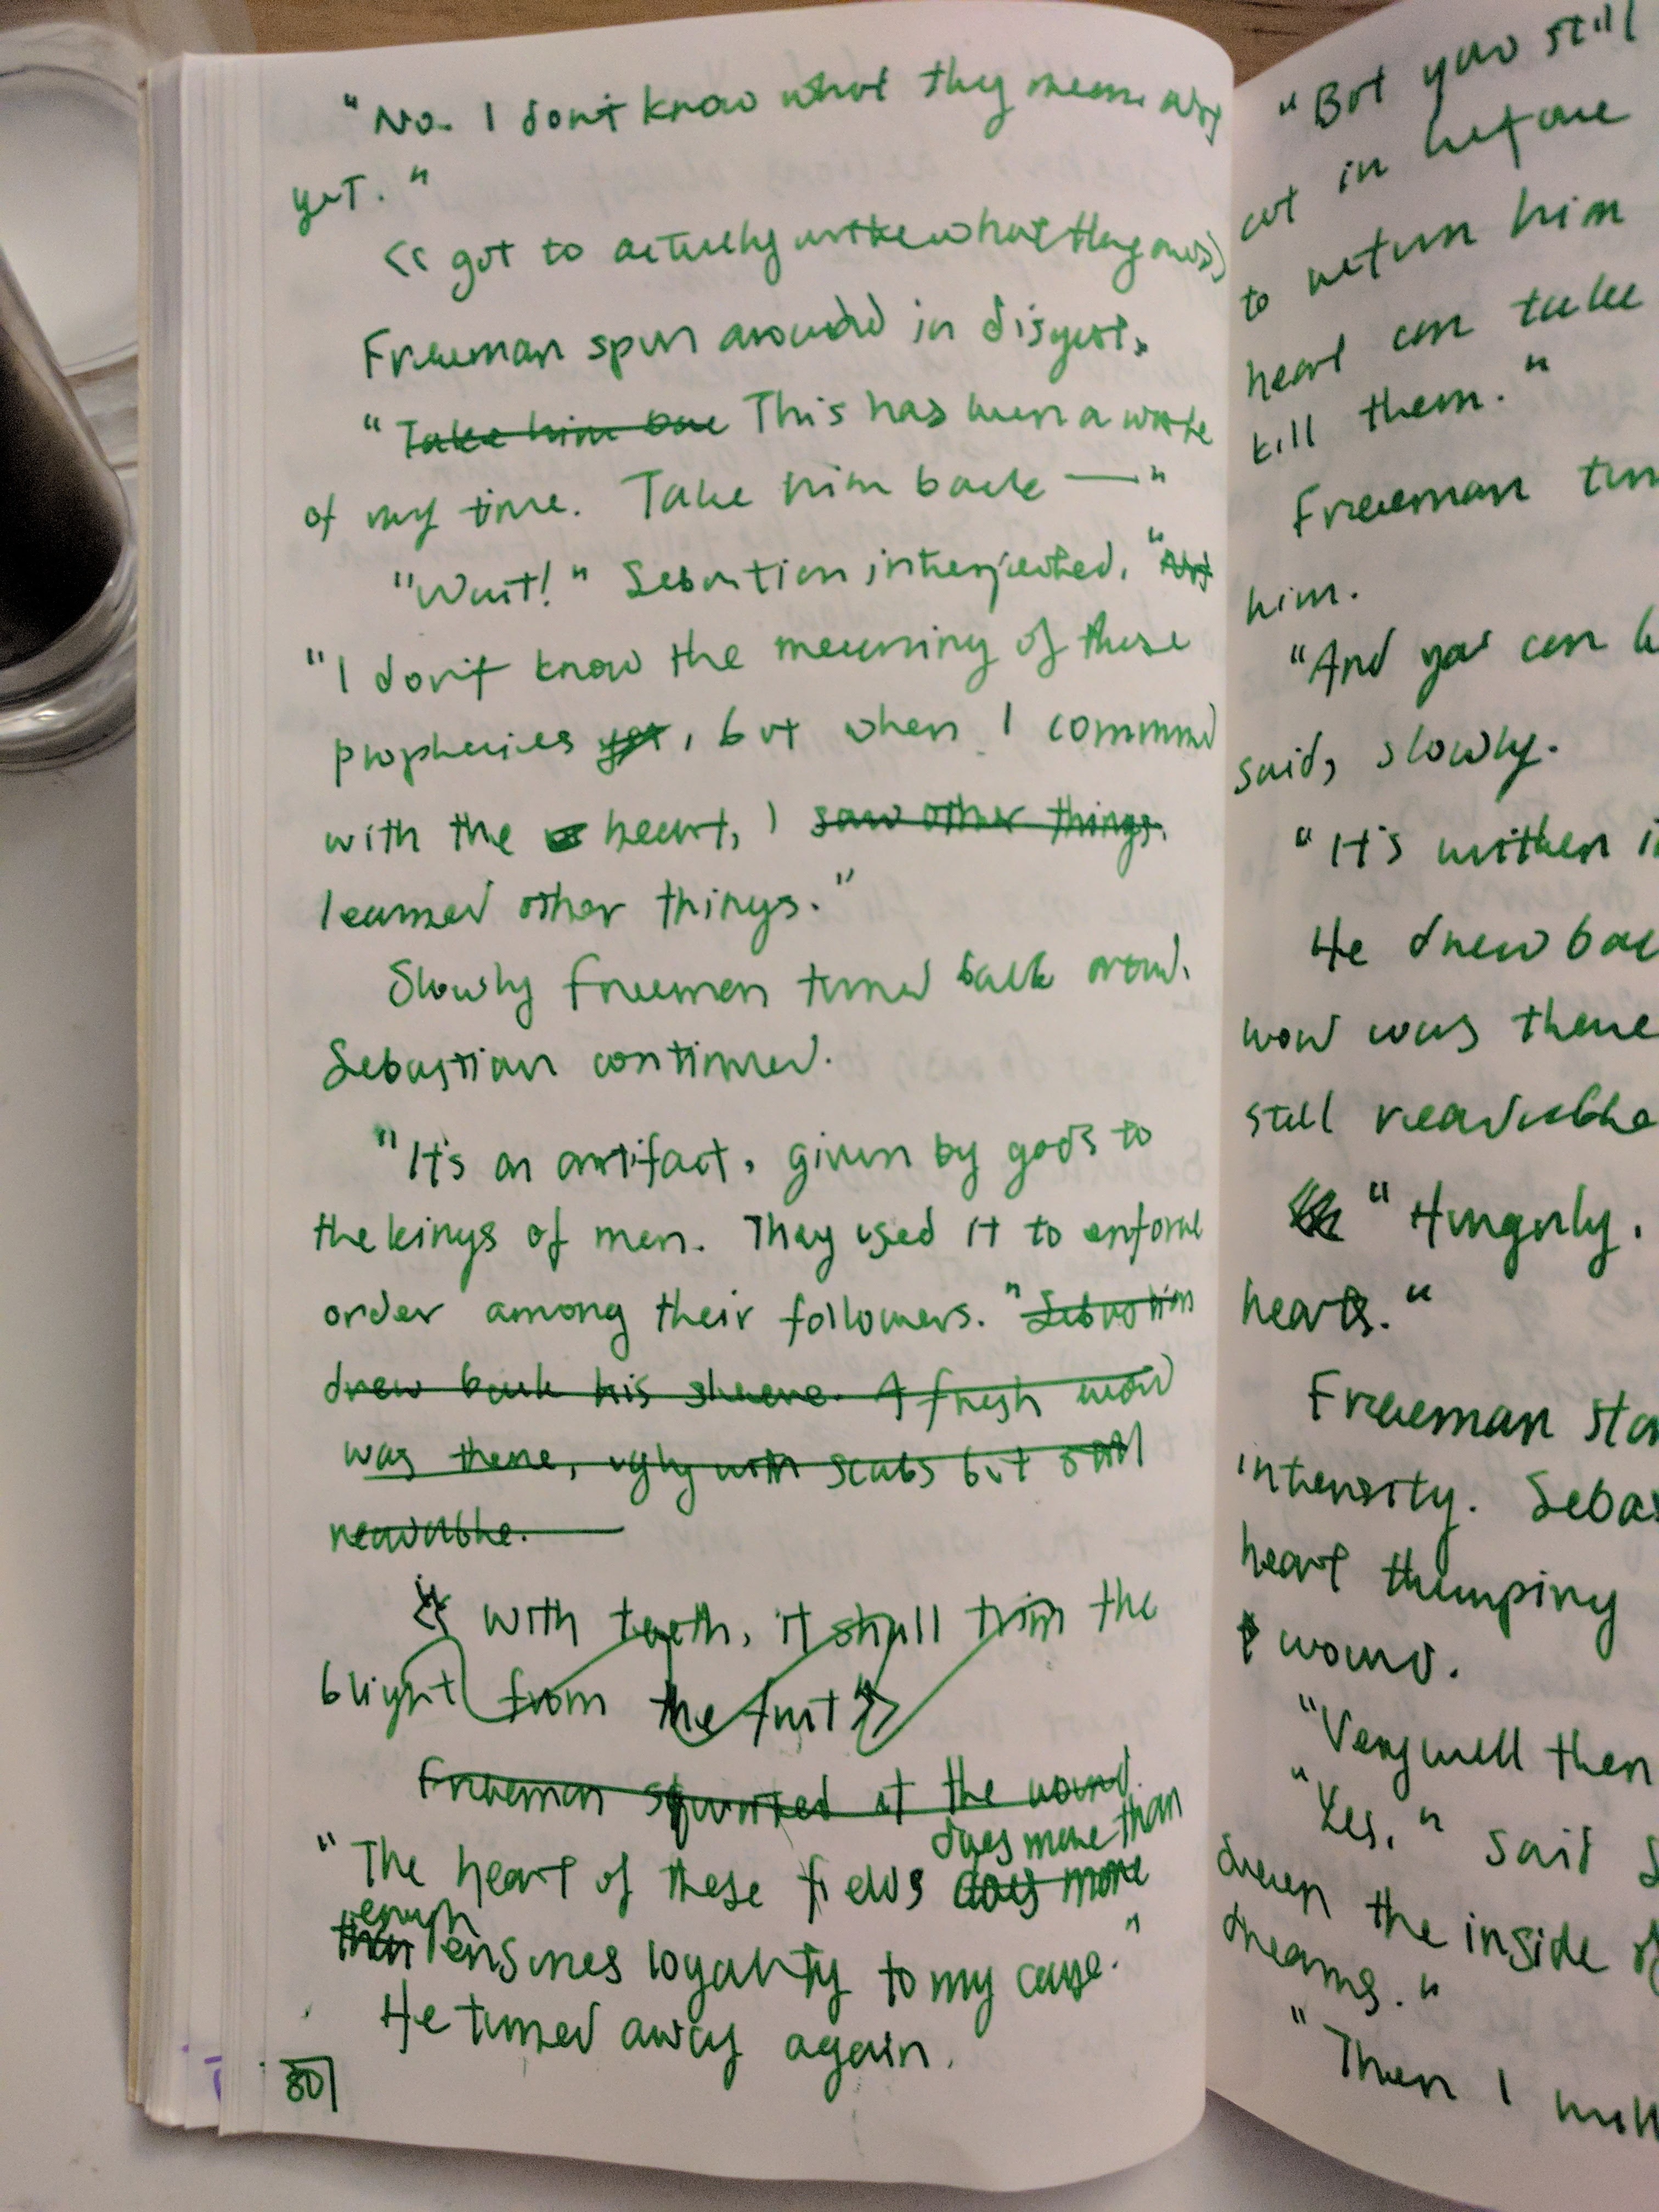 "No. I don't know what they mean
yet."
<< got to actually what they
Freeman spun around in disgust.
"Take him bac This has been a waste
of my time. Take him back —"
"Wait!" Sebastian interjected. "
"I don't know the meaning of these
prophecies yet, but when I communed
with the heart, I saw other things.
learned other things."
Slowly Freeman turned back around.
Sebastian continued.
"It's an artifact, given by gods to
the kings of men. They used it to enforce
order among their followers." Sebastian
drew back his sleeve. A fresh word
was there, ugly with scabs but still
readable.
<< with teeth, it shall trim the
blight from the fruit >>
Freeman squinted at the wound.
does more than
"The heart of these fields does more
enough
than ensures loyalty to my cause."
He turned away again.
80
"But you still
cut in before
to return him
heart can take
kill them."
Freeman
him.
"And you can
said, slowly.
"It's written
He drew
word was there
still readable
"Hungrily,
hearts."
Freeman
intensity.
heart thumping
wound.
"Very well then
"Yes," said
the inside
dreams."
"Then I